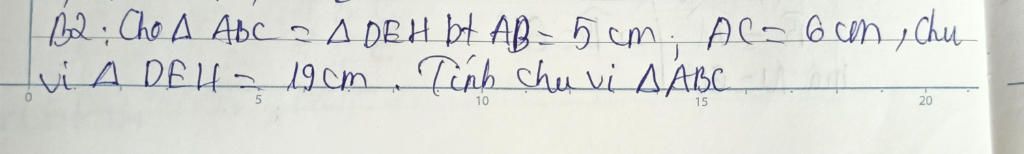 B2: Cho Δ ABC = Δ DEH bt AB = 5 cm; AC = 6 cm, chu
vi Δ DEH = 19 cm. Tính chu vi ΔABC
0 5 10 15 20